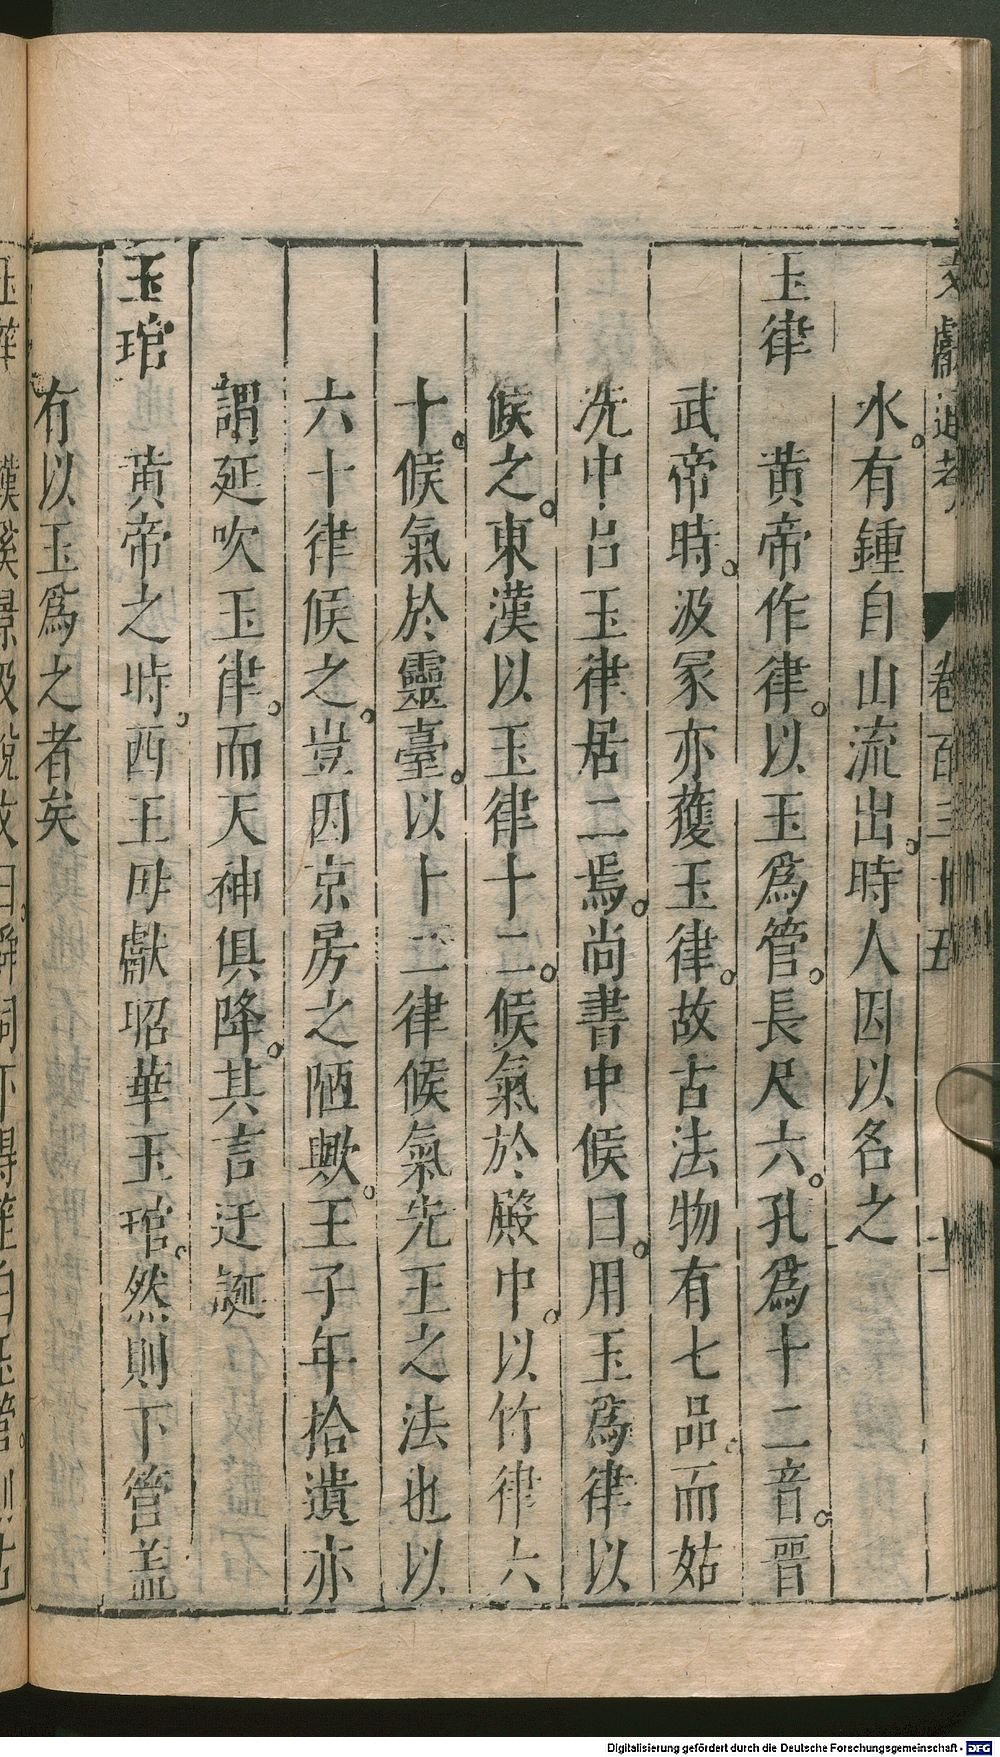 文獻通考 卷百三十五 十一
水。有鍾自山流出。時人因以名之
玉律 黃帝作律。以玉爲管。長尺六。孔爲十二音。晉
武帝時。汲冢亦獲玉律。故古法物有七品。而姑
洗中呂玉律居二焉。尚書中候曰。用玉爲律以
候之。東漢以玉律十二。候氣於殿中。以竹律六
十。候氣於靈臺。以十二律候氣先王之法也以
六十律候之。豈因京房之陋歟。王子年拾遺亦
謂延吹玉律。而天神俱降。其言迂誕
玉琯 黃帝之時。西王母獻昭華玉琯。然則下管盖
有以玉爲之者矣
漢奚景 舜祠下得笙白玉管。則古
Digitalisierung gefördert durch die Deutsche Forschungsgemeinschaft - DFG